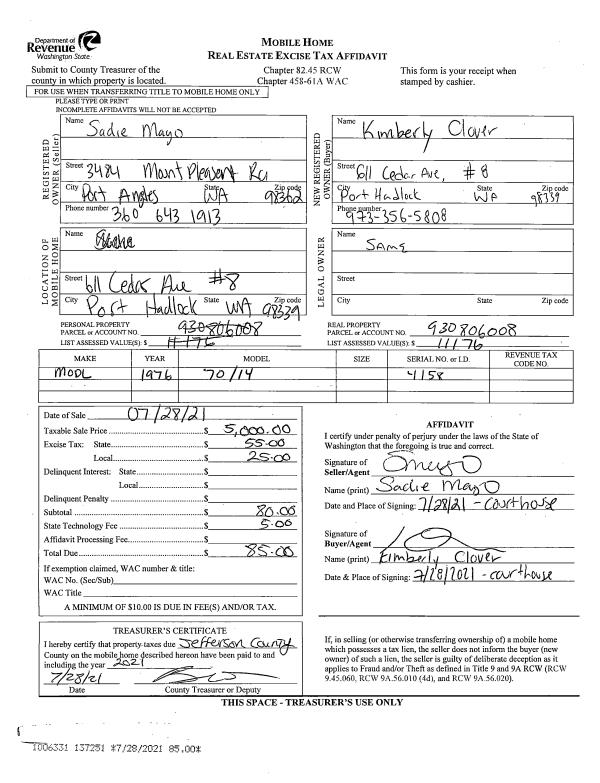 Department of
Revenue
Washington State
MOBILE HOME
REAL ESTATE EXCISE TAX AFFIDAVIT
Submit to County Treasurer of the
county in which property is located.
Chapter 82.45 RCW
Chapter 458-61A WAC
This form is your receipt when
stamped by cashier.
FOR USE WHEN TRANSFERRING TITLE TO MOBILE HOME ONLY
PLEASE TYPE OR PRINT
INCOMPLETE AFFIDAVITS WILL NOT BE ACCEPTED
REGISTERED
OWNER (Seller)
Name Sadie Mayo
Street 3484 Mount Pleasent Rd
City Port Angles State WA Zip code 98362
Phone number 360 643 1913
NEW REGISTERED
OWNER (Buyer)
Name Kimberly Clover
Street 611 Cedar Ave, #8
City Port Hadlock State WA Zip code 98339
Phone number 973-356-5808
LOCATION OF
MOBILE HOME
Name
Street 611 Cedar Ave #8
City Port Hadlock State WA Zip code 98339
LEGAL OWNER
Name SAME
Street
City State Zip code
PERSONAL PROPERTY
PARCEL or ACCOUNT NO. 930806008
LIST ASSESSED VALUE(S): $ 11176
REAL PROPERTY
PARCEL or ACCOUNT NO. 930806008
LIST ASSESSED VALUE(S): $ 11176
MAKE YEAR MODEL SIZE SERIAL NO. or I.D. REVENUE TAX
CODE NO.
MODL 1976 70/14 4158
Date of Sale 07/28/21
Taxable Sale Price $ 5,000.00
Excise Tax: State $ 55.00
Local $ 25.00
Delinquent Interest: State $
Local $
Delinquent Penalty $
Subtotal $ 80.00
State Technology Fee $ 5.00
Affidavit Processing Fee $
Total Due $ 85.00
If exemption claimed, WAC number & title:
WAC No. (Sec/Sub)
WAC Title
A MINIMUM OF $10.00 IS DUE IN FEE(S) AND/OR TAX.
AFFIDAVIT
I certify under penalty of perjury under the laws of the State of
Washington that the foregoing is true and correct.
Signature of
Seller/Agent
Name (print) Sadie Mayo
Date and Place of Signing: 7/28/21 - courthouse
Signature of
Buyer/Agent
Name (print) Kimberly Clover
Date & Place of Signing: 7/28/2021 - courthouse
TREASURER'S CERTIFICATE
I hereby certify that property taxes due Jefferson County
County on the mobile home described hereon have been paid to and
including the year 2021
7/28/21
Date County Treasurer or Deputy
If, in selling (or otherwise transferring ownership of) a mobile home
which possesses a tax lien, the seller does not inform the buyer (new
owner) of such a lien, the seller is guilty of deliberate deception as it
applies to Fraud and/or Theft as defined in Title 9 and 9A RCW (RCW
9.45.060, RCW 9A.56.010 (4d), and RCW 9A.56.020).
THIS SPACE - TREASURER'S USE ONLY
1006331 137251 *7/28/2021 85.00*